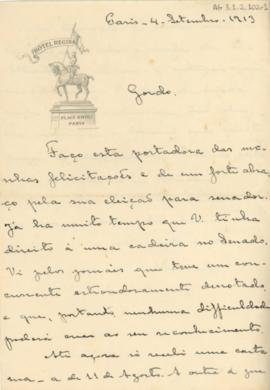 AG 3.1.2.102-1
Paris - 4 - Setembro. 1913
HÔTEL REGINA
PLACE RIVOLI
PARIS
Gordo.
Faço esta portadora das mi-
nhas felicitações e de um forte abra-
ço pela sua eleição para senador.
Ja ha muito tempo que V. tinha
direito à uma cadeira no Senado.
Vi pelos jornáes que teve um con-
currente estrondosamente derrotado,
e que, portanto, nenhuma difficuldade
poderá oppor ao seu reconhecimento.
Até agora só recebi uma carta
sua - a de 11 de Agosto. A outra á que